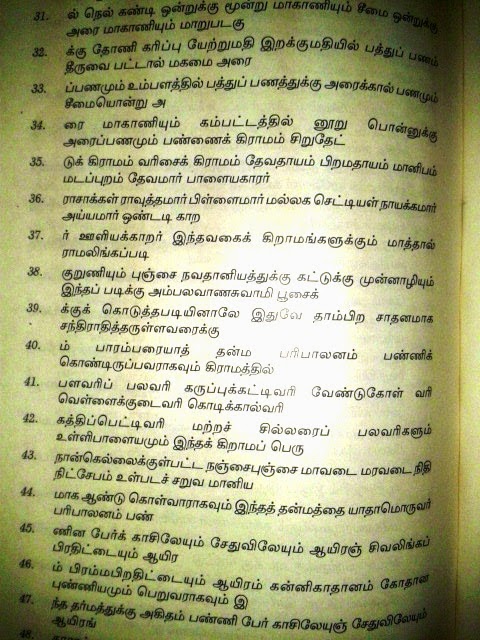 31. ல் நெல் கண்டி ஒன்றுக்கு மூன்று மாகாணியும் சீமை ஒன்றுக்கு
அரை மாகாணியும் மாறுபடகு
32. க்கு தோணி கரிப்பு யேற்றுமதி இறக்குமதியில் பத்துப் பணம்
தீருவை பட்டால் மகமை அரை
33. ப்பணமும் உம்பளத்தில் பத்துப் பணத்துக்கு அரைக்கால் பணமும்
சீமையொன்று அ
34. ரை மாகாணியும் கம்பட்டத்தில் னூறு பொன்னுக்கு
அரைப்பணமும் பண்ணைக் கிராமம் சிறுதேட்
35. டுக் கிராமம் வரிசைக் கிராமம் தேவதாயம் பிறமதாயம் மானிபம்
மடப்புறம் தேவமார் பாளையகாரர்
36. ராசாக்கள் ராவுத்தமார் பிள்ளைமார் மல்லக செட்டியள் நாயக்கமார்
அய்யமார் ஒண்டடி காற
37. ர் ஊளியக்காறர் இந்தவகைக் கிறாமங்களுக்கும் மாத்தால்
ராமலிங்கப்படி
38. குறுணியும் புஞ்சை நவதானியத்துக்கு கட்டுக்கு முன்னாழியும்
இந்தப் படிக்கு அம்பலவாணசுவாமி பூசைக்
39. க்குக் கொடுத்தபடியினாலே இதுவே தாம்பிற சாதனமாக
சந்திராதித்தருள்ளவரைக்கு
40. ம் பாரம்பரையாத் தன்ம பரிபாலனம் பண்ணிக்
கொண்டிருப்பவராகவும் கிராமத்தில்
41. பளவரிப் பலவரி கருப்புக்கட்டிவரி வேண்டுகோள் வரி
வெள்ளைக்குடைவரி கொடிக்கால்வரி
42. கத்திப்பெட்டிவரி மற்றச் சில்லரைப் பலவரிகளும்
உள்ளிபாளையமும் இந்தக் கிறாமப் பெரு
43. நான்கெல்லைக்குள்பட்ட நஞ்சைபுஞ்சை மாவடை மரவடை நிதி
நிட்சேபம் உள்படச் சறுவ மானிய
44. மாக ஆண்டு கொள்வாராகவும் இந்தத் தன்மத்தை யாதாமொருவர்
பரிபாலனம் பண்
45. ணின பேர்க் காசிலேயும் சேதுவிலேயும் ஆயிரஞ் சிவலிங்கப்
பிரதிட்டையும் ஆயிர
46. ம் பிரம்மபிறதிட்டையும் ஆயிரம் கன்னிகாதானம் கோதான
புண்ணியமும் பெறுவராகவும் இ
47. ந்த தர்மத்துக்கு அகிதம் பண்ணி பேர் காசிலேயுஞ் சேதுவிலேயும்
ஆயிரங்
48.